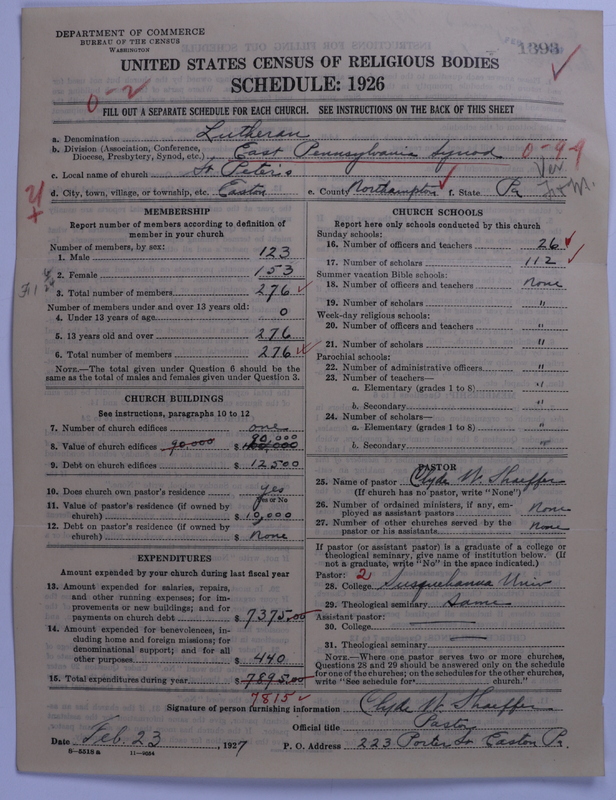 DEPARTMENT OF COMMERCE
BUREAU OF THE CENSUS
WASHINGTON
1393
UNITED STATES CENSUS OF RELIGIOUS BODIES
SCHEDULE: 1926
0-2
FILL OUT A SEPARATE SCHEDULE FOR EACH CHURCH. SEE INSTRUCTIONS ON THE BACK OF THIS SHEET
a. Denomination Lutheran
b. Division (Association, Conference, Diocese, Presbytery, Synod, etc.) East Pennsylvania Synod 0-99
c. Local name of church St Peter's
d. City, town, village, or township, etc. Easton e. County Northampton f. State Pa
MEMBERSHIP
Report number of members according to definition of
member in your church
Number of members, by sex:
1. Male 123
2. Female 153
3. Total number of members 276
Number of members under and over 13 years old:
4. Under 13 years of age 0
5. 13 years old and over 276
6. Total number of members 276
NOTE.—The total given under Question 6 should be the
same as the total of males and females given under Question 3.
CHURCH BUILDINGS
See instructions, paragraphs 10 to 12
7. Number of church edifices one
8. Value of church edifices 90.000 $ 90,000
9. Debt on church edifices $ 12,500
10. Does church own pastor's residence yes
Yes or No
11. Value of pastor's residence (if owned by
church) $ 10,000
12. Debt on pastor's residence (if owned by
church) $ None
EXPENDITURES
Amount expended by your church during last fiscal year
13. Amount expended for salaries, repairs,
and other running expenses; for im-
provements or new buildings; and for
payments on church debt $ 7375.00
14. Amount expended for benevolences, in-
cluding home and foreign missions; for
denominational support; and for all
other purposes $ 440
15. Total expenditures during year $ 7895.00
7815
CHURCH SCHOOLS
Report here only schools conducted by this church
Sunday schools:
16. Number of officers and teachers 26
17. Number of scholars 112
Summer vacation Bible schools:
18. Number of officers and teachers None
19. Number of scholars "
Week-day religious schools:
20. Number of officers and teachers "
21. Number of scholars "
Parochial schools:
22. Number of administrative officers "
23. Number of teachers—
a. Elementary (grades 1 to 8) "
b. Secondary "
24. Number of scholars—
a. Elementary (grades 1 to 8) "
b. Secondary "
PASTOR
25. Name of pastor Clyde W. Shaeffer
(If church has no pastor, write "None")
26. Number of ordained ministers, if any, em-
ployed as assistant pastors None
27. Number of other churches served by the
pastor or his assistants None
If pastor (or assistant pastor) is a graduate of a college or
theological seminary, give name of institution below. (If
not a graduate, write "No" in the space indicated.)
Pastor: 2
28. College Susquehanna Univ
29. Theological seminary Same
Assistant pastor:
30. College
31. Theological seminary
NOTE.—Where one pastor serves two or more churches,
Questions 28 and 29 should be answered only on the schedule
for one of the churches; on the schedules for the other churches,
write "See schedule for church."
Signature of person furnishing information Clyde W. Shaeffer
Official title Pastor
Date Feb. 23, 1927 P. O. Address 223 Porter St Easton Pa.
8-5518a 11-9554